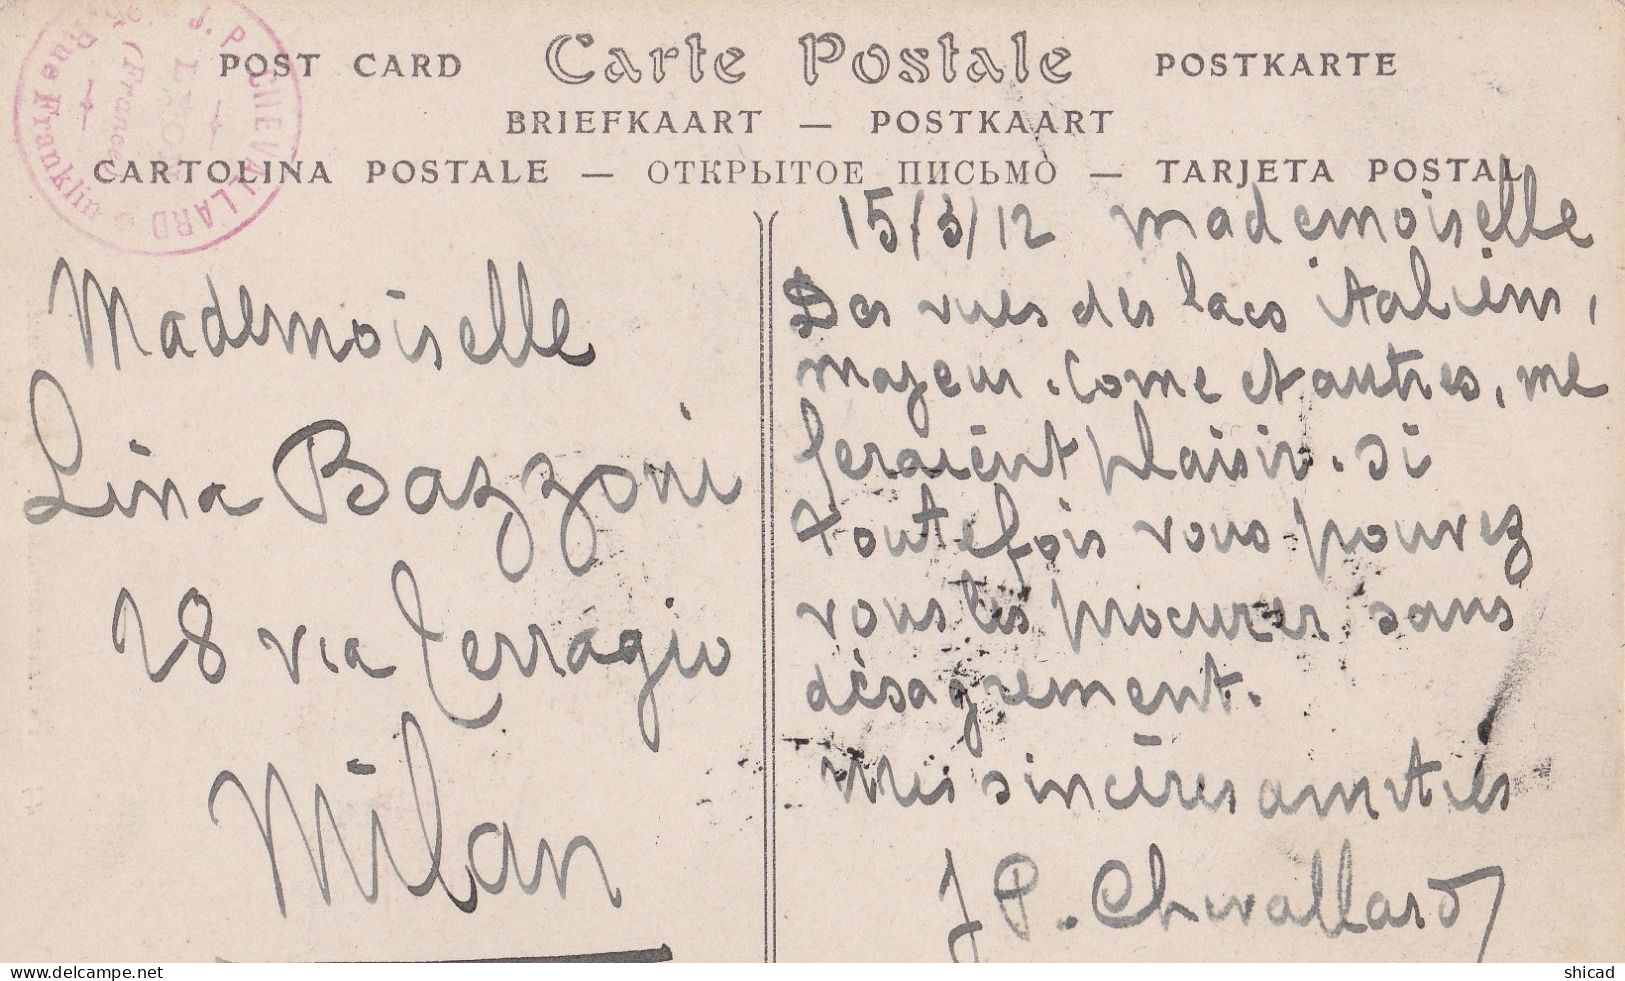 POST CARD Carte Postale POSTKARTE
BRIEFKAART — POSTKAART
CARTOLINA POSTALE — ОТКРЫТОЕ ПИСЬМО — TARJETA POSTAL
J. P. CHEVALLARD
Rue Franklin
LYON
(France)
Mademoiselle
Lina Bazzoni
28 via Terragio
Milan
15/3/12 Mademoiselle
Des vues des lacs italiens,
majeur. Come et autres, me
feraient plaisir. Si
toutefois vous pouvez
vous les procurer sans
désagrement.
Mes sincères amitiés
J P. Chevallard
www.delcampe.net
shicad